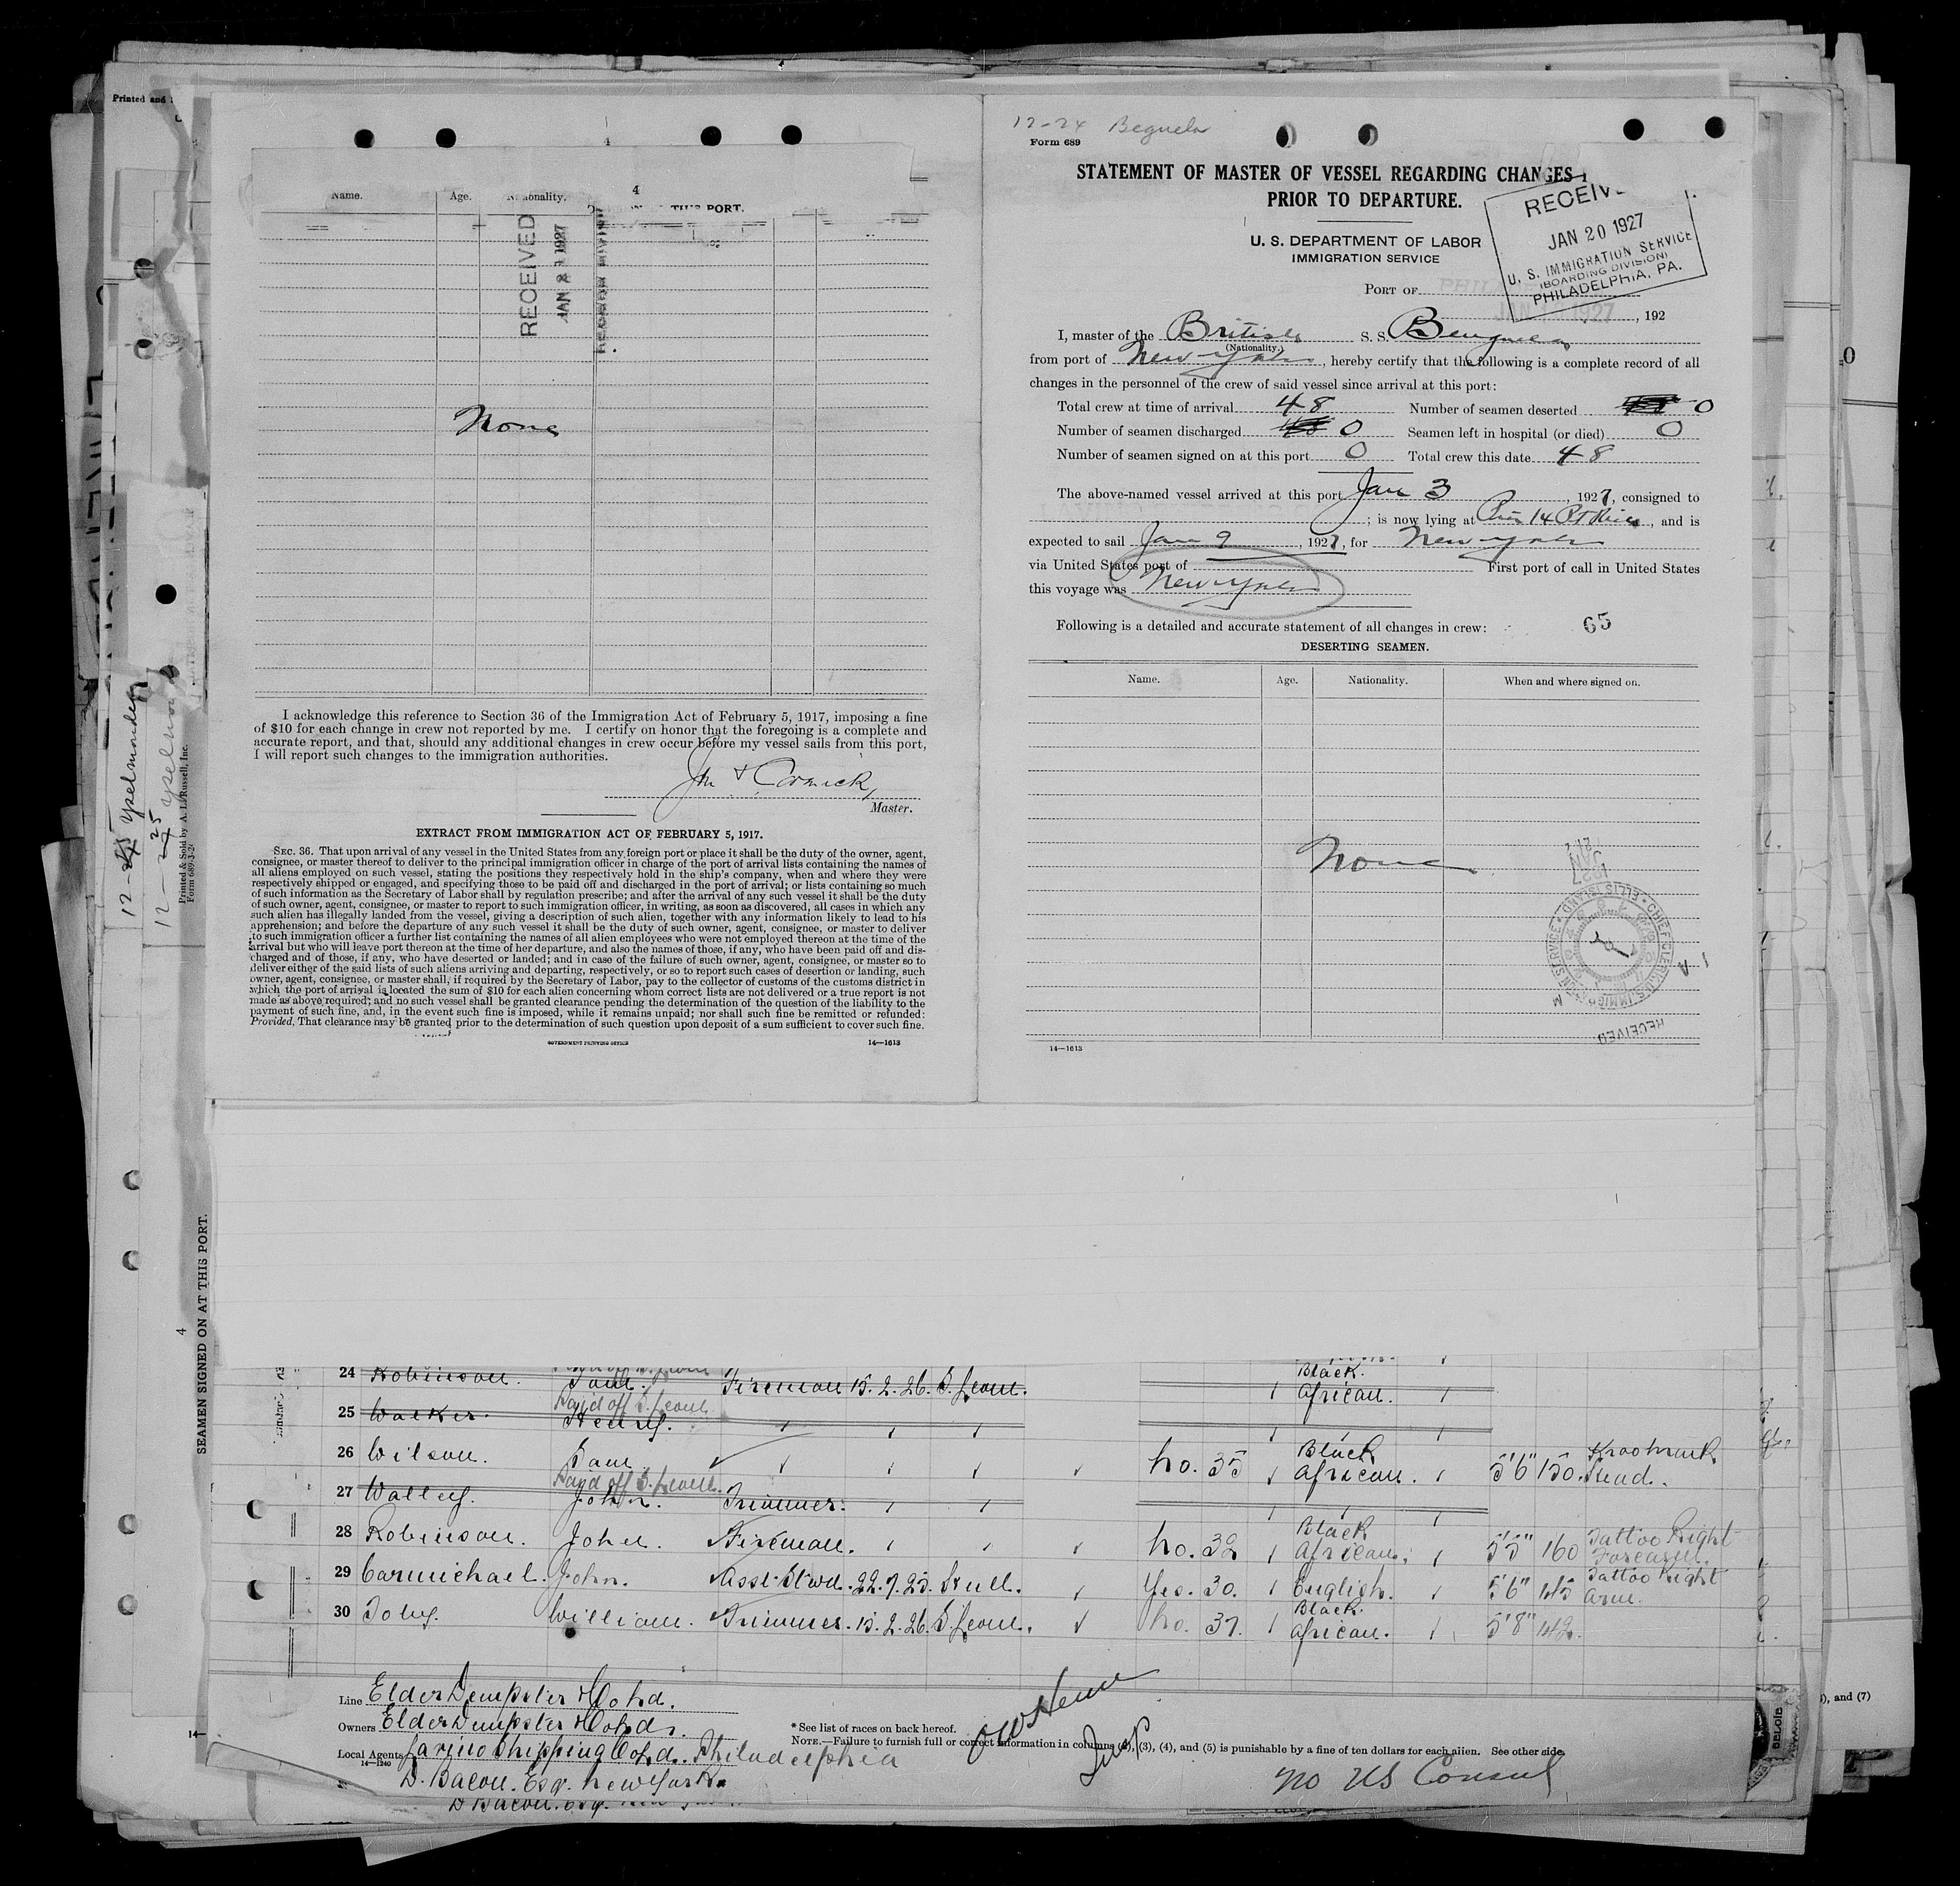 Printed and
4
Name. Age. Nationality.
THIS PORT.
RECEIVED
JAN 2 1927
None
I acknowledge this reference to Section 36 of the Immigration Act of February 5, 1917, imposing a fine
of $10 for each change in crew not reported by me. I certify on honor that the foregoing is a complete and
accurate report, and that, should any additional changes in crew occur before my vessel sails from this port,
I will report such changes to the immigration authorities.
Cormick,
Master.
EXTRACT FROM IMMIGRATION ACT OF FEBRUARY 5, 1917.
SEC. 36. That upon arrival of any vessel in the United States from any foreign port or place it shall be the duty of the owner, agent,
consignee, or master thereof to deliver to the principal immigration officer in charge of the port of arrival lists containing the names of
all aliens employed on such vessel, stating the positions they respectively hold in the ship's company, when and where they were
respectively shipped or engaged, and specifying those to be paid off and discharged in the port of arrival; or lists containing so much
of such information as the Secretary of Labor shall by regulation prescribe; and after the arrival of any such vessel it shall be the duty
of such owner, agent, consignee, or master to report to such immigration officer, in writing, as soon as discovered, all cases in which any
such alien has illegally landed from the vessel, giving a description of such alien, together with any information likely to lead to his
apprehension; and before the departure of any such vessel it shall be the duty of such owner, agent, consignee, or master to deliver
to such immigration officer a further list containing the names of all alien employees who were not employed thereon at the time of the
arrival but who will leave port thereon at the time of her departure, and also the names of those, if any, who have been paid off and dis-
charged and of those, if any, who have deserted or landed; and in case of the failure of such owner, agent, consignee, or master so to
deliver either of the said lists of such aliens arriving and departing, respectively, or so to report such cases of desertion or landing, such
owner, agent, consignee, or master shall, if required by the Secretary of Labor, pay to the collector of customs of the customs district in
which the port of arrival is located the sum of $10 for each alien concerning whom correct lists are not delivered or a true report is not
made as above required; and no such vessel shall be granted clearance pending the determination of the question of the liability to the
payment of such fine, and, in the event such fine is imposed, while it remains unpaid; nor shall such fine be remitted or refunded:
Provided, That clearance may be granted prior to the determination of such question upon deposit of a sum sufficient to cover such fine.
GOVERNMENT PRINTING OFFICE 14—1613
12-24 Beguela
Form 689
STATEMENT OF MASTER OF VESSEL REGARDING CHANGES
PRIOR TO DEPARTURE.
U. S. DEPARTMENT OF LABOR
IMMIGRATION SERVICE
RECEIV
JAN 20 1927
U. S. IMMIGRATION SERVICE
(BOARDING DIVISION)
PHILADELPHIA, PA.
PORT OF
, 192
I, master of the British S. S. Benguela
(Nationality.)
from port of New York, hereby certify that the following is a complete record of all
changes in the personnel of the crew of said vessel since arrival at this port:
Total crew at time of arrival 48 Number of seamen deserted 0
Number of seamen discharged 0 Seamen left in hospital (or died) 0
Number of seamen signed on at this port 0 Total crew this date 48
The above-named vessel arrived at this port Jan 3, 1927, consigned to
; is now lying at 14, and is
expected to sail Jan 9, 1927, for New York
via United States port of First port of call in United States
this voyage was New York
Following is a detailed and accurate statement of all changes in crew: 65
DESERTING SEAMEN.
Name. Age. Nationality. When and where signed on.
None
1927
JAN
CHIEF CLERK U.S. IMMIG ELLIS ISLAND
RECEIVED
14—1613
Printed & Sold by A. L. Russell, Inc.
SEAMEN SIGNED ON AT THIS PORT.
4
24 Robinson. Fireman 15.2.26. S. Leone. Black African.
25 Walker. Henry. Paid off S. Leone
26 Wilson. Sam no. 35 Black African. 5'6" 150.
27 John. Paid off S. Leone. Trimmer.
28 Robinson. John. Fireman. no. 32 Black African. 5'5" 160 Tattoo Right Forearm.
29 Carmichael. John. Asst. Stwd. Hull. Yes. 30. English. 5'6" 145 Tattoo Right Arm.
30 Toby. William. Trimmer. 15.2.26. S. Leone. no. 37. Black African. 5'8"
Line Elder Dempster
Owners Elder Dempster
Local Agents Shipping Philadelphia
14—1240
D. Bacon. Esq. New York
D. Bacon. Esq.
* See list of races on back hereof.
NOTE.—Failure to furnish full or correct information in columns (2), (3), (4), and (5) is punishable by a fine of ten dollars for each alien. See other side.
no US Consul
, and (7)